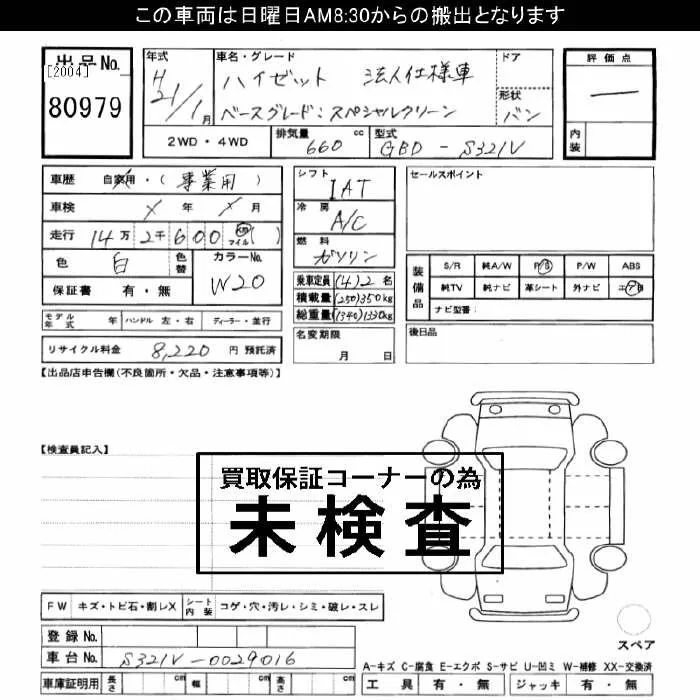 この車両は日曜日AM8:30からの搬出となります
出品No.
[2004]
80979
年式
H21/1月
車名・グレード
ハイゼット 法人仕様車
ベースグレード:スペシャルクリーン
ドア
形状
バン
評価点
—
内装
2WD・4WD
排気量 660 cc
型式 GBD-S321V
車歴 自家用・(事業用)
車検 X年 X月
走行 14万2千600 km マイル( )
色 白 色替
カラーNo. W20
保証書 有・無
モデル年式 年 ハンドル 左・右 ディーラー・並行
リサイクル料金 8,220円 預託済
シフト
IAT
冷房
A/C
燃料
ガソリン
乗車定員 (4)2名
積載量 (250)350kg
総重量 (1340)1330kg
名変期限
月 日
セールスポイント
装備品
S/R 純A/W P/S P/W ABS
純TV 純ナビ 革シート 外ナビ
ナビ型番:
後日品
【出品店申告欄(不良箇所・欠品・注意事項等)】
【検査員記入】
買取保証コーナーの為
未検査
FW キズ・トビ石・割レX シート内装 コゲ・穴・汚レ・シミ・破レ・スレ
登録No.
車台No. S321V-0029016
車庫証明用 長さ cm 幅 cm 高さ cm
スペア
A-キズ C-腐食 E-エクボ S-サビ U-凹ミ W-補修 XX-交換済
工具 有・無 ジャッキ 有・無